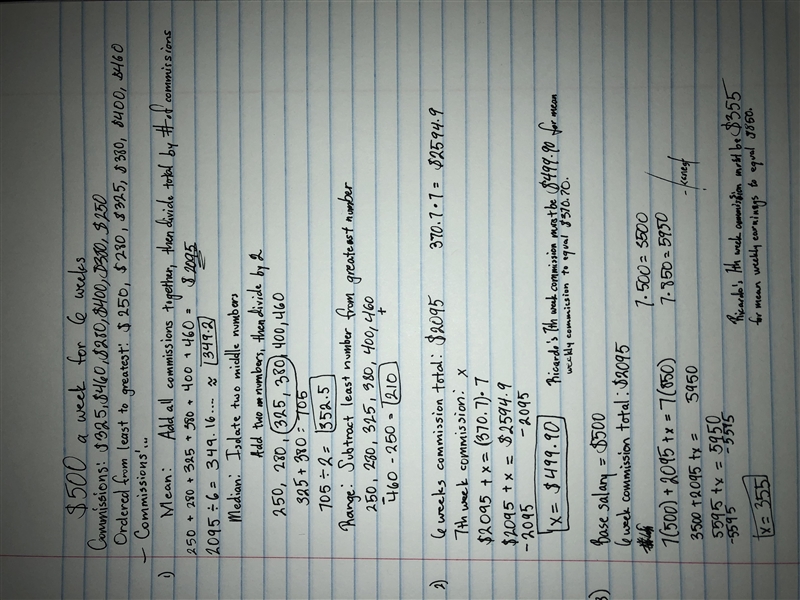 $500 a week for 6 weeks
Commissions: $325, $460, $280, $400, $380, $250
Ordered from least to greatest: $250, $280, $325, $380, $400, $460
- Commissions'...
1) Mean: Add all commissions together, then divide total by # of commissions
250 + 280 + 325 + 380 + 400 + 460 = $2095
2095 ÷ 6 = 349.16... ≈ 349.2
Median: Isolate two middle numbers
Add two numbers, then divide by 2
250, 280, 325, 380, 400, 460
325 + 380 = 705
705 ÷ 2 = 352.5
Range: Subtract least number from greatest number
250, 280, 325, 380, 400, 460
460 - 250 = 210
2) 6 weeks commission total: $2095 370.7 · 7 = $2594.9
7th week commission: x
$2095 + x = (370.7) · 7
$2095 + x = $2594.9
-2095 -2095
x = $499.90
Ricardo's 7th week commission must be $499.90 for mean
weekly commission to equal $370.70.
3) Base salary = $500
6 week commission total: $2095
7 · 500 = 3500
7(500) + 2095 + x = 7(850) 7 · 850 = 5950
3500 + 2095 + x = 5950
5595 + x = 5950
-5595 -5595
x = 355
Ricardo's 7th week commission must be $355
for mean weekly earnings to equal $850.